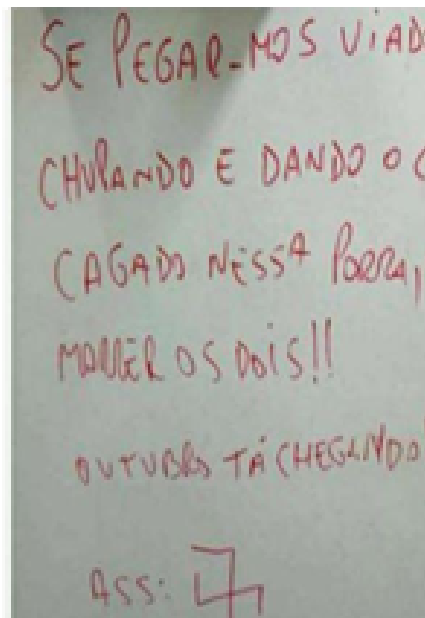 SE PEGAR-MOS VIAD
CHUPANDO E DANDO O C
CAGADO NESSA PORRA,
MORRER OS DOIS!!
OUTUBRO TÁ CHEGANDO
ASS: